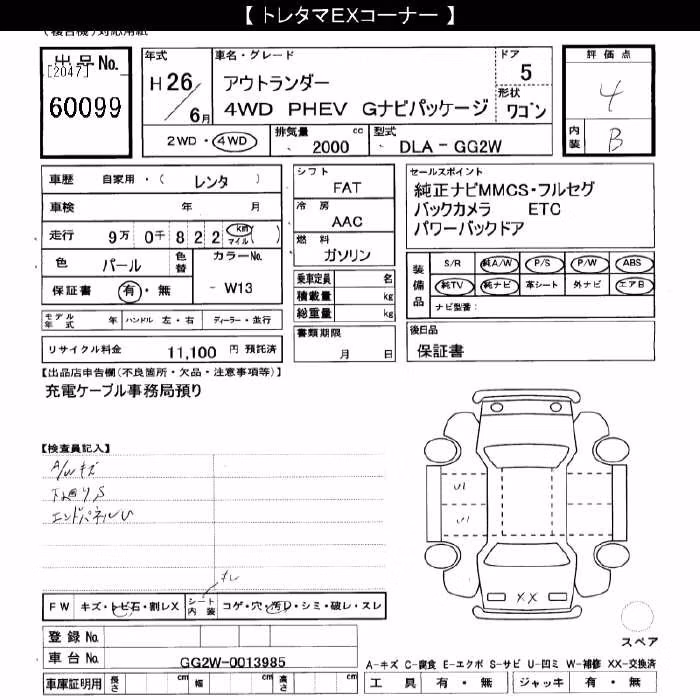 【 トレタマEXコーナー 】
(複合機)対応用紙
出品No.
[2047]
60099
年式
H26/6月
車名・グレード
アウトランダー
4WD PHEV Gナビパッケージ
ドア
5
形状
ワゴン
評価点
4
内装
B
2WD・4WD
排気量 2000 cc
型式 DLA-GG2W
車歴 自家用・( レンタ )
車検 年 月
走行 9万 0千 8 2 2 km マイル ( )
色 パール
色替
カラーNo.
- W13
保証書 有・無
シフト
FAT
冷房
AAC
燃料
ガソリン
乗車定員 名
積載量 kg
総重量 kg
セールスポイント
純正ナビMMCS・フルセグ
バックカメラ ETC
パワーバックドア
装備品
S/R 純A/W P/S P/W ABS
純TV 純ナビ 革シート 外ナビ エアB
ナビ型番:
モデル年式 年 ハンドル 左・右 ディーラー・並行
書類期限
月 日
後日品
保証書
リサイクル料金 11,100 円 預託済
【出品店申告欄(不良箇所・欠品・注意事項等)】
充電ケーブル事務局預り
【検査員記入】
A/Wキズ
下廻りS
エンドパネルU
U1
U1
XX
スレ
FW キズ・トビ石・割レX
シート内装 コゲ・穴・汚レ・シミ・破レ・スレ
スペア
登録No.
車台No. GG2W-0013985
A-キズ C-腐食 E-エクボ S-サビ U-凹ミ W-補修 XX-交換済
車庫証明用 長さ cm 幅 cm 高さ cm
工具 有・無 ジャッキ 有・無